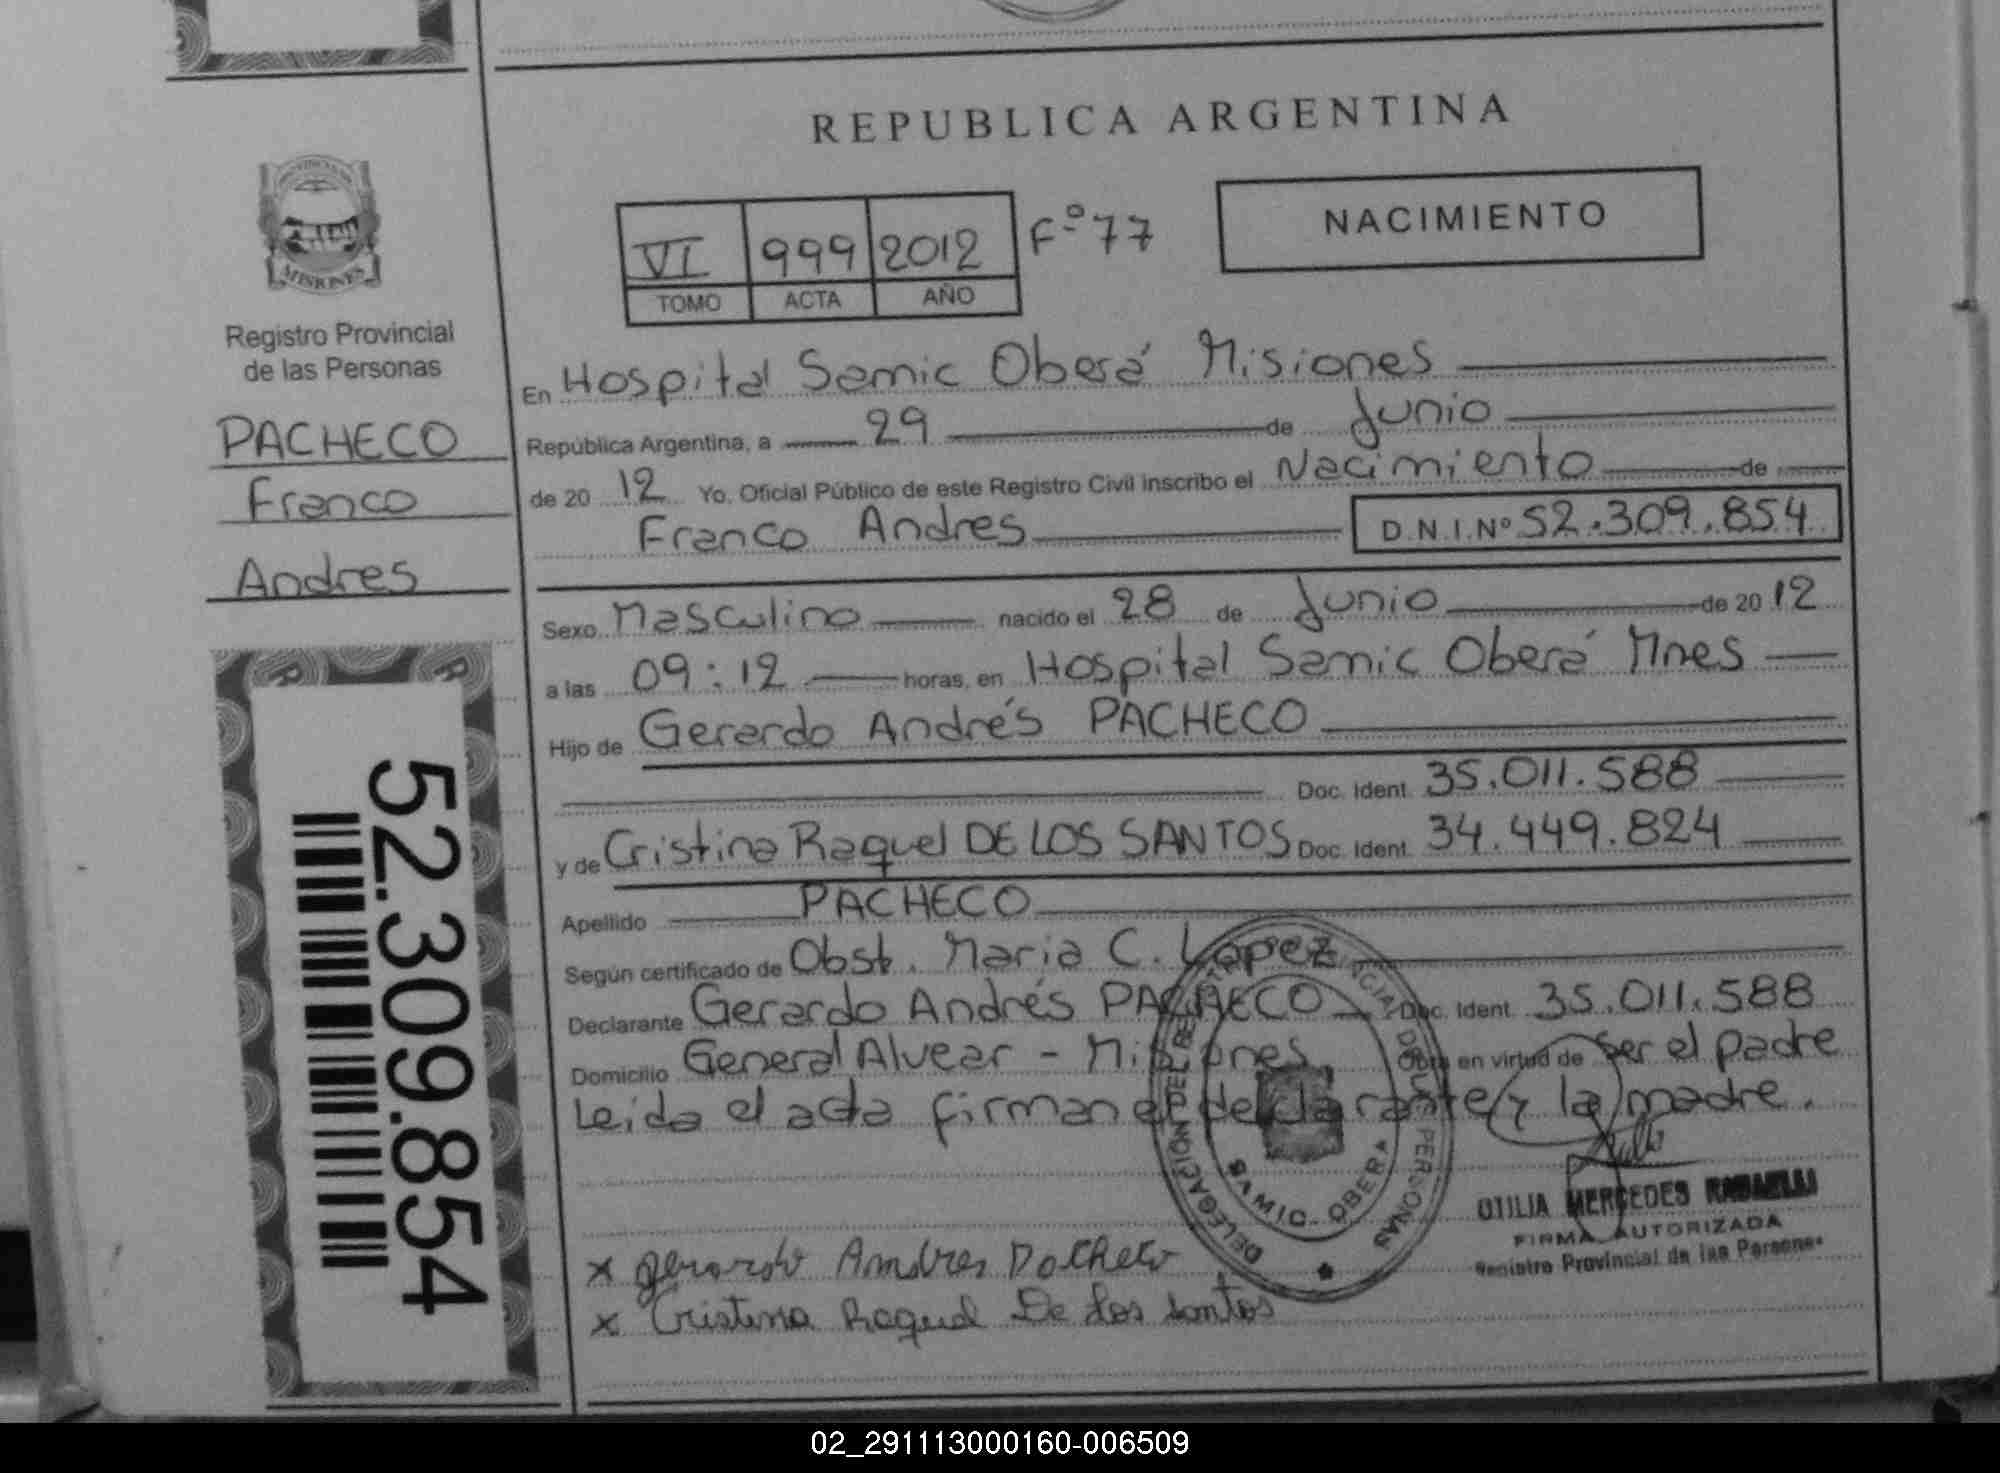 REPUBLICA ARGENTINA
NACIMIENTO
VI 999 2012 Fº 77
TOMO ACTA AÑO
MISIONES
Registro Provincial
de las Personas
PACHECO
Franco
Andres
52.309.854
En Hospital Samic Oberá Misiones
República Argentina, a 29 de Junio
de 20 12 Yo, Oficial Público de este Registro Civil inscribo el Nacimiento de
Franco Andres D.N.I.Nº 52.309.854
Sexo Masculino nacido el 28 de Junio de 20 12
a las 09:12 horas, en Hospital Samic Oberá Mnes
Hijo de Gerardo Andrés PACHECO
Doc. Ident. 35.011.588
y de Cristina Raquel DE LOS SANTOS Doc. Ident. 34.449.824
Apellido PACHECO
Según certificado de Obst. Maria C. Lopez
Declarante Gerardo Andrés PACHECO Doc. Ident. 35.011.588
Domicilio General Alvear - Misiones Obra en virtud de ser el padre
Leida el acta firman el declarante y la madre.
DELEGACIÓN DEL PERSONAS
SAMIC - OBERA
OTILIA MERCEDES
FIRMA AUTORIZADA
Registro Provincial de las Personas
x Gerardo Andres Pacheco
x Cristina Raquel De los Santos
02_291113000160-006509